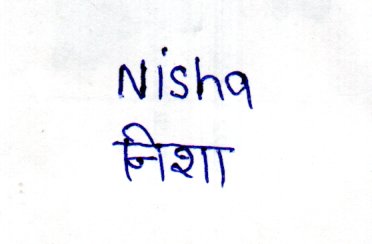 Nisha
निशा